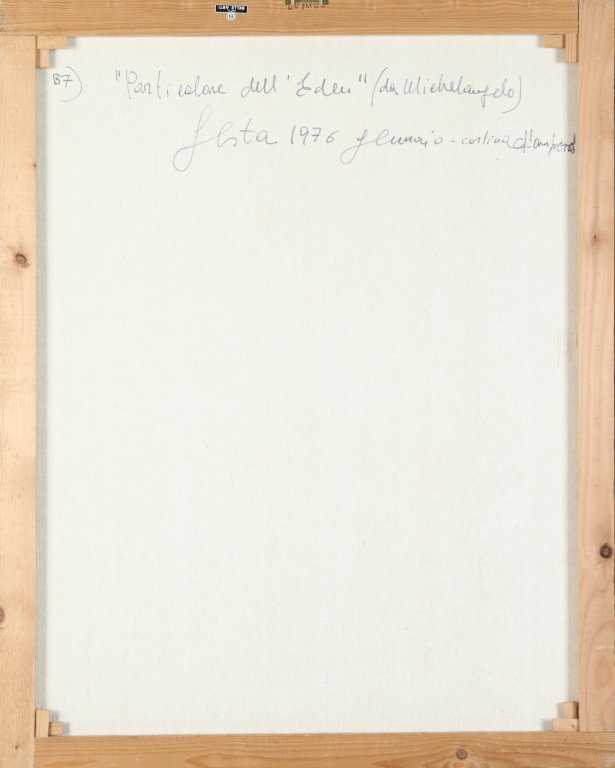 BELLE ARTI
B7) "Particolare dell'Eden" (da Michelangelo)
Festa 1976 gennaio - cortina d'ampezzo